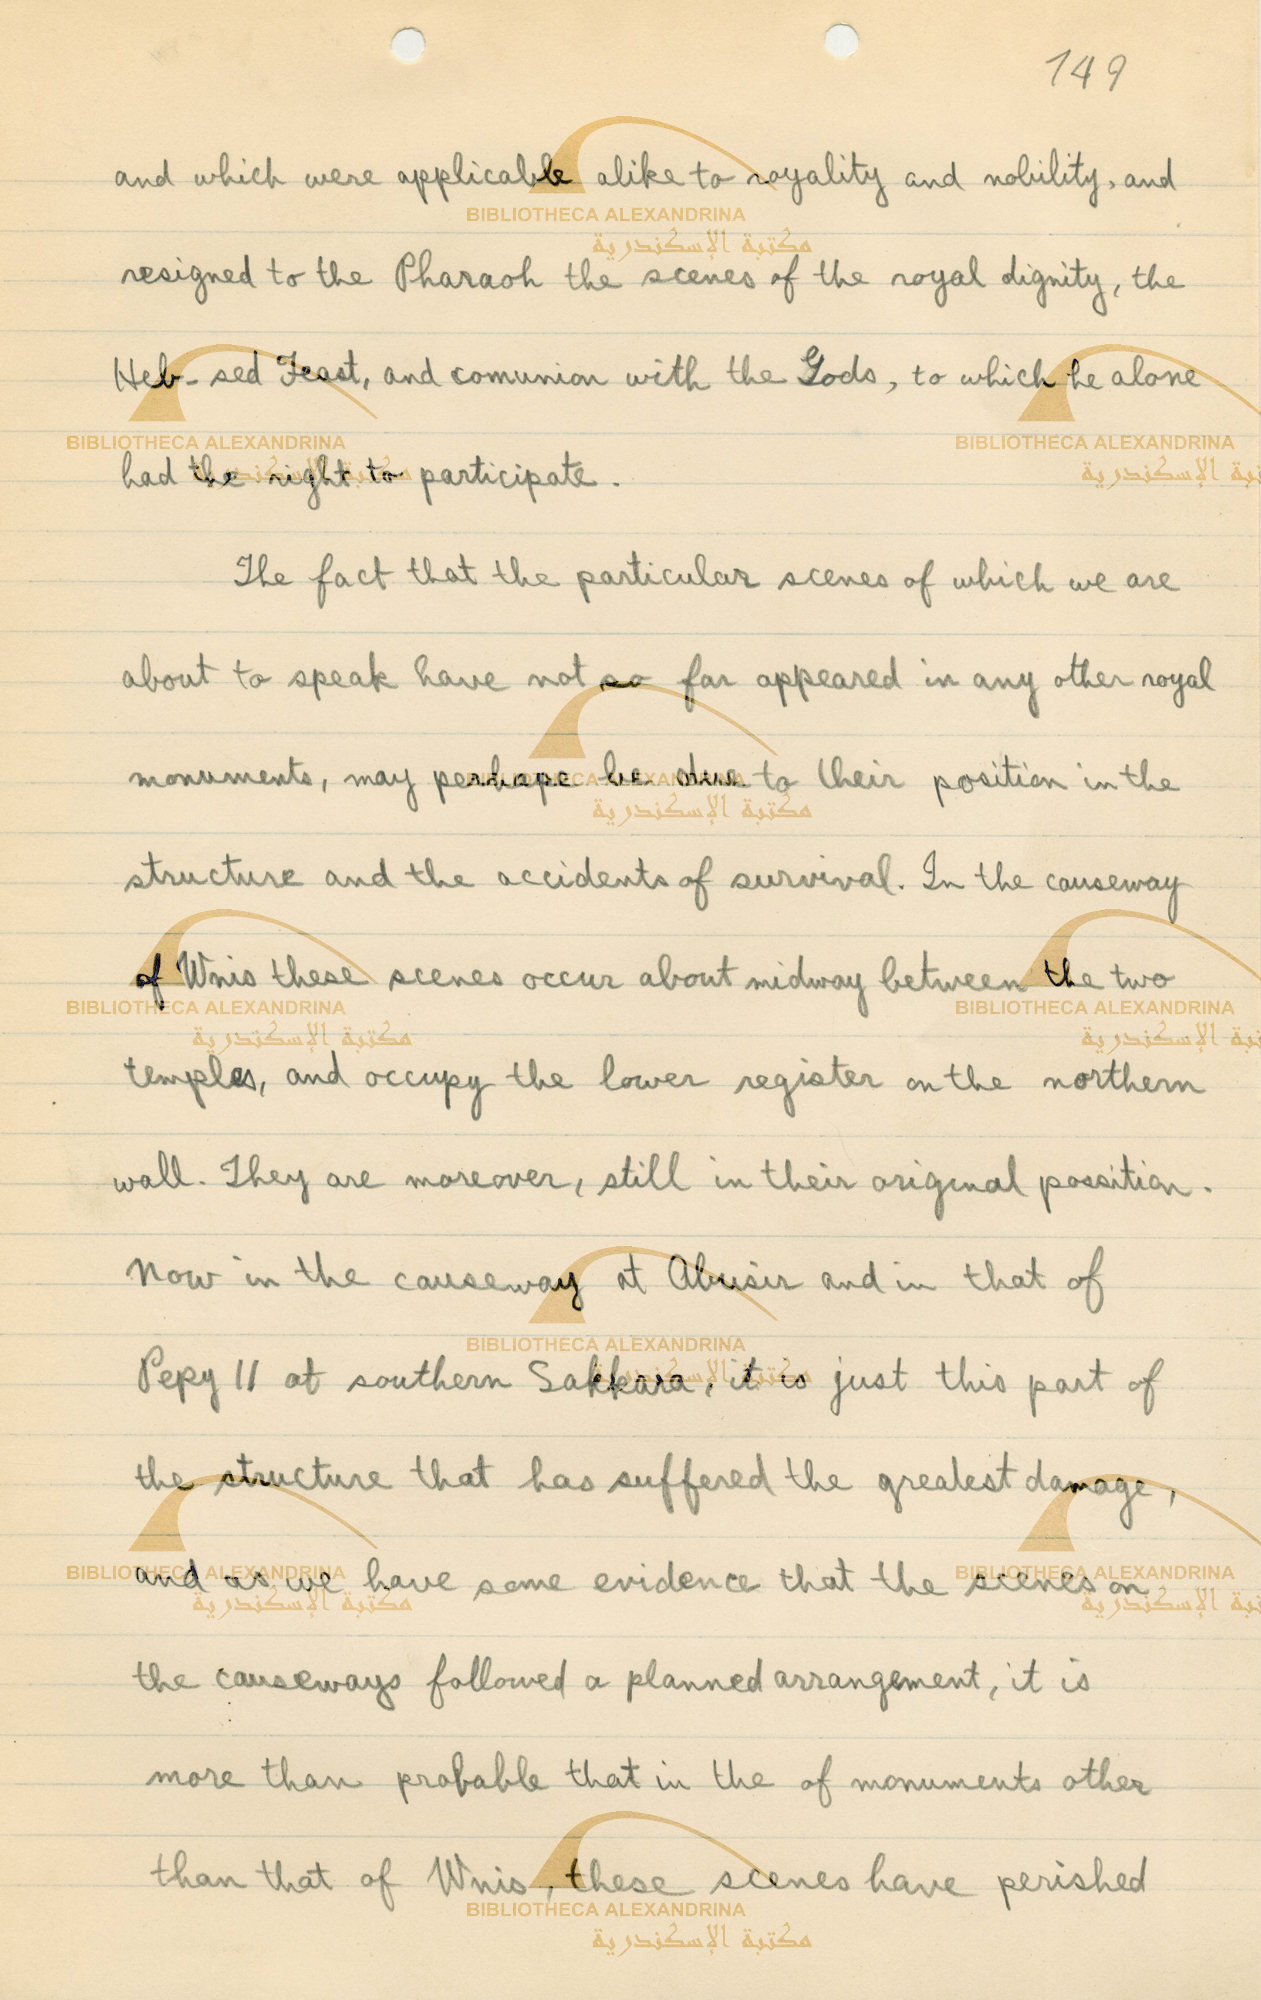 149
and which were applicable alike to royality and nobility, and
resigned to the Pharaoh the scenes of the royal dignity, the
Heb-sed Feast, and comunion with the Gods, to which he alone
had the right to participate.
The fact that the particular scenes of which we are
about to speak have not so far appeared in any other royal
monuments, may perhaps be due to their position in the
structure and the accidents of survival. In the causeway
of Wnis these scenes occur about midway between the two
temples, and occupy the lower register on the northern
wall. They are moreover, still in their original possition.
Now in the causeway at Abusir and in that of
Pepy II at southern Sakkara, it is just this part of
the structure that has suffered the greatest damage,
and as we have some evidence that the scenes on
the causeways followed a planned arrangement, it is
more than probable that in the of monuments other
than that of Wnis, these scenes have perished
BIBLIOTHECA ALEXANDRINA
مكتبة الإسكندرية